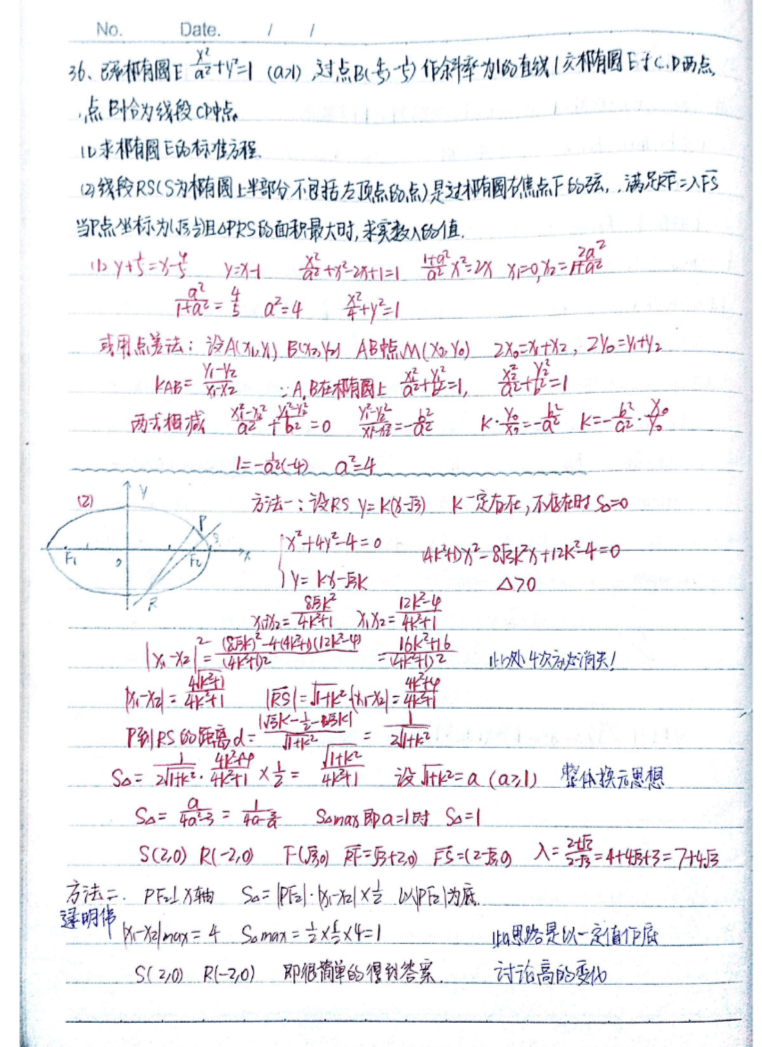 No. Date. / /
36、已知椭圆E x²/a²+y²=1 (a>1),过点B(4/5,-1/5)作斜率为1的直线l交椭圆E于C,D两点,
点B恰为线段CD中点。
(1)求椭圆E的标准方程.
(2)线段RS(S为椭圆上半部分不包括左顶点的点)是过椭圆右焦点F的弦,满足RF=λFS
当P点坐标为(√3,1/2)且△PRS的面积最大时,求实数λ的值.
(1) y+1/5=x-4/5 y=x-1 x²/a²+x²-2x+1=1 (1+a²)/a² x²=2x x₁=0,x₂=2a²/(1+a²)
a²/(1+a²)=4/5 a²=4 x²/4+y²=1
或用点差法:设A(x₁,y₁) B(x₂,y₂) AB中点M(x₀,y₀) 2x₀=x₁+x₂, 2y₀=y₁+y₂
K_AB=(y₁-y₂)/(x₁-x₂) ∵A,B在椭圆上 x₁²/a²+y₁²/b²=1, x₂²/a²+y₂²/b²=1
两式相减 (x₁²-x₂²)/a²+(y₁²-y₂²)/b²=0 (y₁²-y₂²)/(x₁²-x₂²)=-b²/a² K·y₀/x₀=-b²/a² K=-b²/a²·x₀/y₀
1=-1/a²(-4) a²=4
(2) y P S F₁ o F₂ x R
方法一:设RS y=K(x-√3) K一定存在,不存在时S△=0
x²+4y²-4=0
y=Kx-√3K
(4K²+1)x²-8√3K²x+12K²-4=0
△>0
x₁+x₂=8√3K²/(4K²+1) x₁x₂=(12K²-4)/(4K²+1)
|x₁-x₂|²=((8√3K²)²-4(4K²+1)(12K²-4))/(4K²+1)²=(16K²+16)/(4K²+1)² 此处4次方必消失!
|x₁-x₂|=4√(K²+1)/(4K²+1) |RS|=√(1+K²)·|x₁-x₂|=(4K²+4)/(4K²+1)
P到RS的距离d=|√3K-1/2-√3K|/√(1+K²)=1/(2√(1+K²))
S△=1/(2√(1+K²))·(4K²+4)/(4K²+1)×1/2=√(1+K²)/(4K²+1) 设√(1+K²)=a (a≥1) 整体换元思想
S△=a/(4a²-3)=1/(4a-3/a) S△max即a=1时 S△=1
S(2,0) R(-2,0) F(√3,0) RF=(√3+2,0) FS=(2-√3,0) λ=(2+√3)/(2-√3)=4+4√3+3=7+4√3
方法二. PF₂⊥x轴 S△=|PF₂|·|x₁-x₂|×1/2 以|PF₂|为底.
|x₁-x₂|max=4 S△max=1/2×1/2×4=1 此思路是以一定值作底
S(2,0) R(-2,0) 即很简单的得到答案. 讨论高的变化